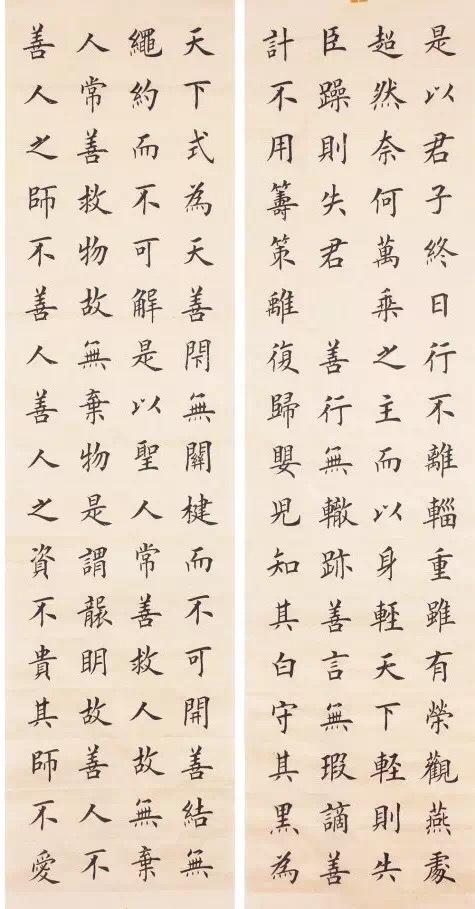 是以君子終日行不離輜重雖有榮觀燕處
超然奈何萬乘之主而以身輕天下輕則失
臣躁則失君 善行無轍跡善言無瑕謫善
計不用籌策離復歸嬰兒知其白守其黑為
天下式為天善閇無關楗而不可開善結無
繩約而不可解是以聖人常善救人故無棄
人常善救物故無棄物是謂襲明故善人不
善人之師不善人善人之資不貴其師不愛